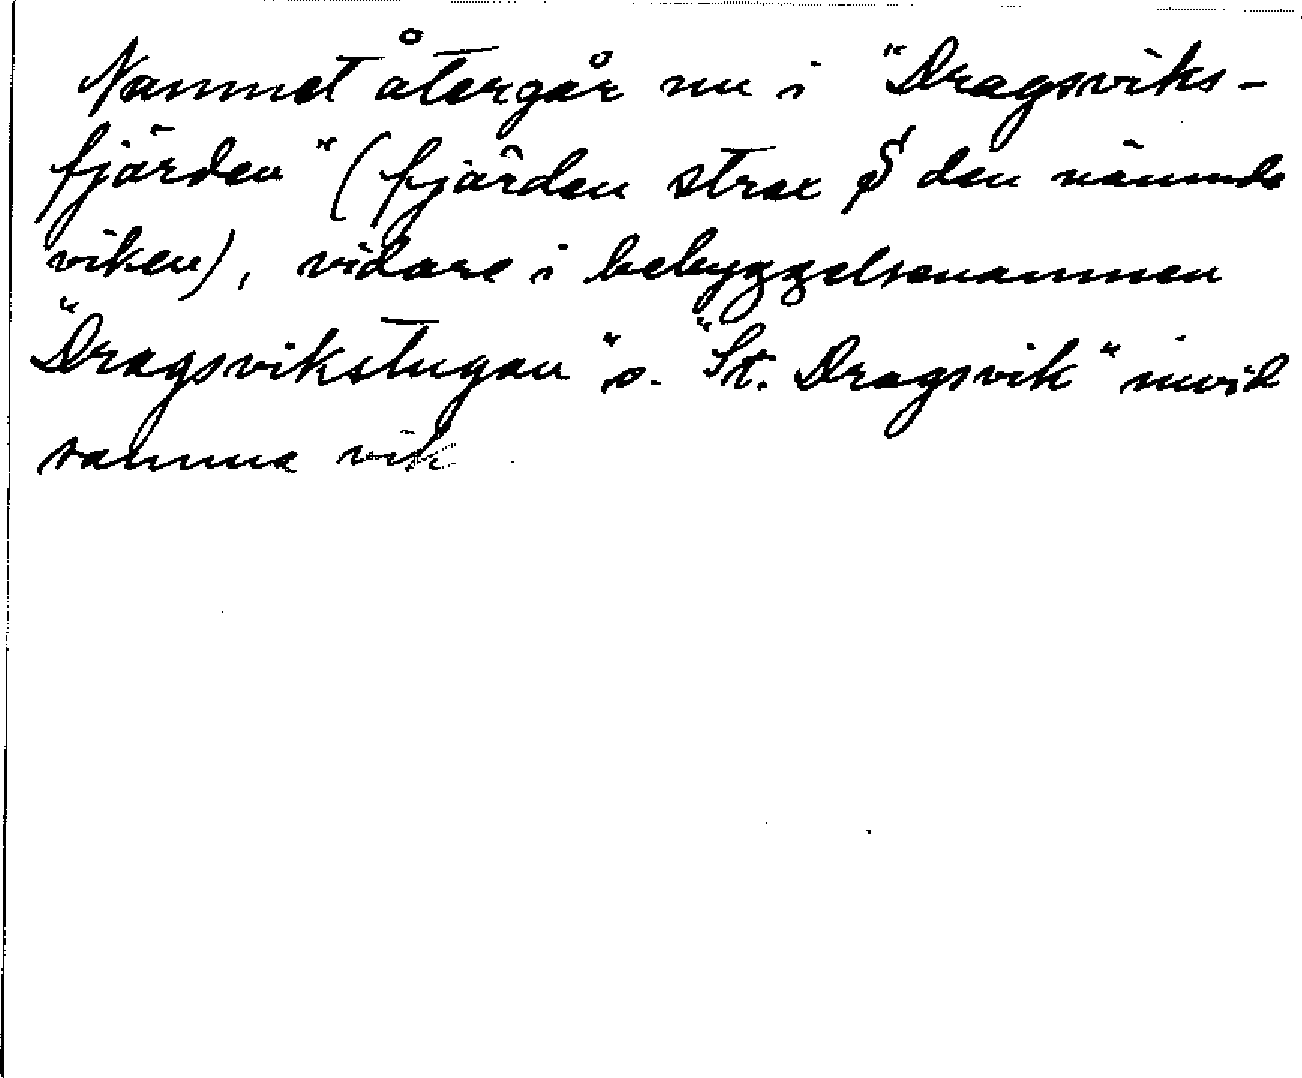 Namnet återgår nu i "Dragsviks-
fjärden" (fjärden strax S den nämnda
viken), vidare i bebyggelsenamnen
"Dragsvikstugan" o. "St. Dragsvik" invid
samma vik